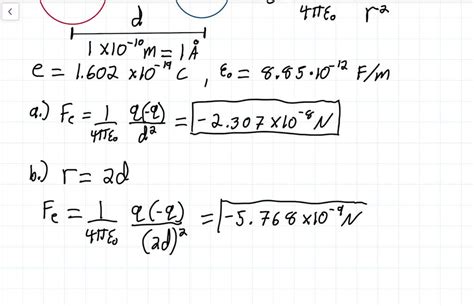 d
4πε₀ r²
1×10⁻¹⁰ m = 1 Å
e = 1.602 ×10⁻¹⁹ C , ε₀ = 8.85·10⁻¹² F/m
a.) Fₑ = 1/4πε₀ q(-q)/d² = -2.307×10⁻⁸ N
b.) r = 2d
Fₑ = 1/4πε₀ q(-q)/(2d)² = -5.768×10⁻⁹ N